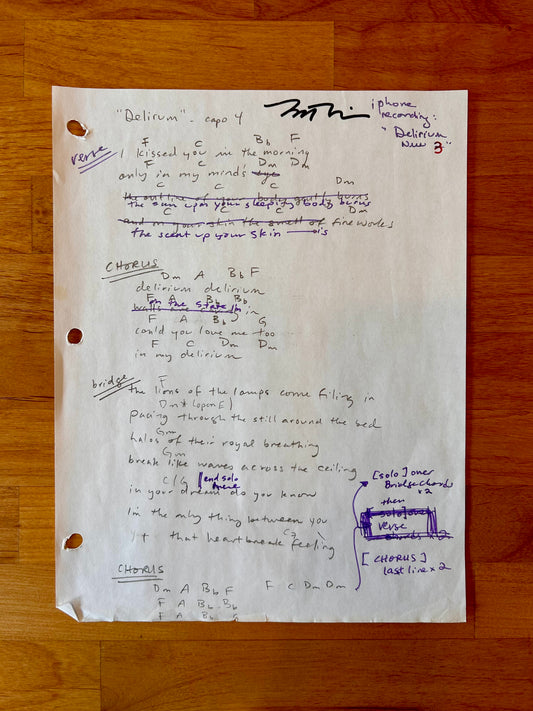 "Delirum" - capo 4
iphone
recording:
"Delirium
new 3"
verse
F C Bb F
I kissed you in the morning
F C Dm Dm
only in my mind's eye
C C C Dm
the sun upon your sleeping body burns
C C C Dm
and on your skin the smell of fireworks
the scent up your skin is
CHORUS
Dm A Bb F
delirium delirium
F A Bb Bb
the state in
walls are in
F A Bb G
could you love me too
F C Dm Dm
in my delirium
bridge
F
the lions of the lamps come filing in
Dm* (open E)
pacing through the still around the bed
Gm
halos of their royal breathing
Gm
break like waves across the ceiling
C/G end solo here
in your dream do you know
I'm the only thing between you
C7
that heartbreak feeling
[solo] over
Bridge chords
x2
then
solo] over
verse
chords x 2
[CHORUS]
last line x 2
CHORUS
Dm A Bb F F C Dm Dm
F A Bb Bb
F A Bb G